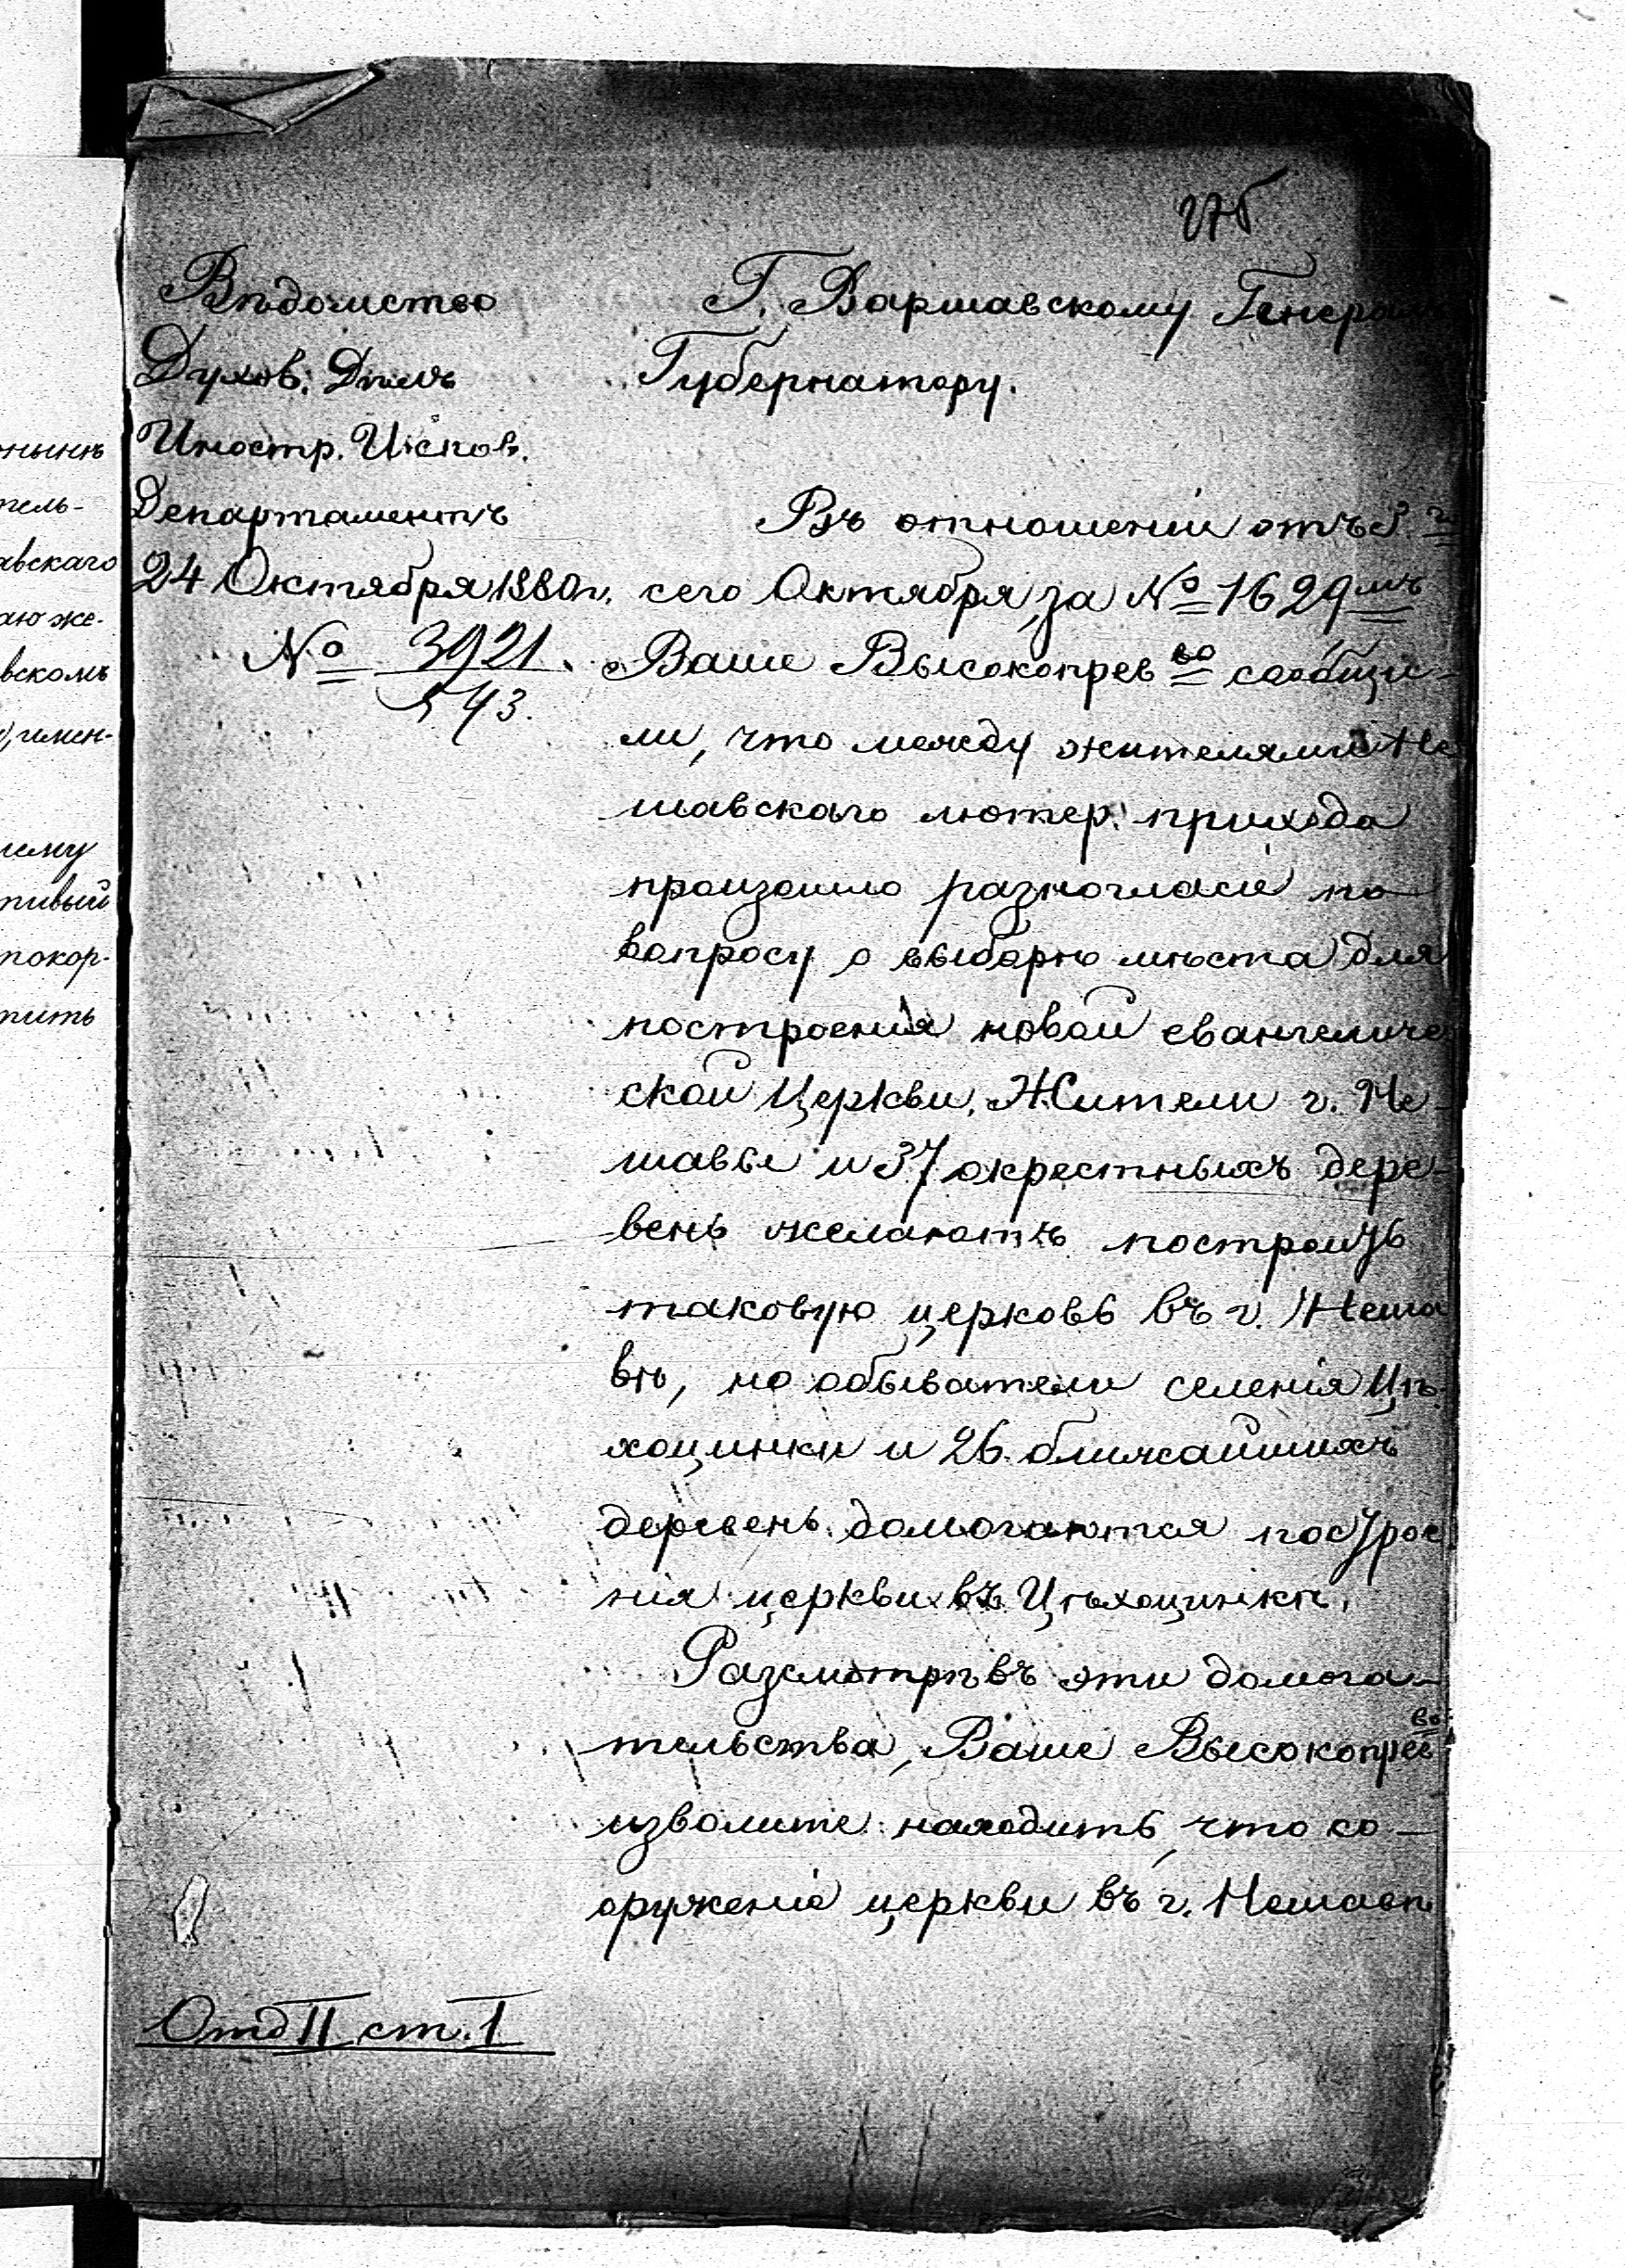 Вѣдомство
Духов. Дѣлъ
Иностр. Испов.
Департаментъ
24 Октября 1880 г.
№ 3921.
543.
Г. Варшавскому Генерал
Губернатору.
Въ отношеніи отъ
сего Октября, за № 1629мъ
Ваше Высокопрев во сообщи-
ли, что между жителями Не
шавскаго лютер. прихода
произошло разногласіе по
вопросу о выборѣ мѣста для
построенія новой евангеличе
ской Церкви. Жители г. Не-
шавы и 37 окрестныхъ дере-
вень желаютъ построить
таковую церковь въ г. Неша
вѣ, но обыватели селенія Цѣ
хоцинки и 26 ближайшихъ
деревень домогаются построе
нія церкви въ Цѣхоцинкѣ.
Разсмотрѣвъ эти домога-
тельства, Ваше Высокопрев во
изволите находить, что со-
оруженіе церкви въ г. Нешавѣ
Отд II ст. I
нынѣ
тель-
авскаго
аю же-
вскомъ
тивый
покор-
тить